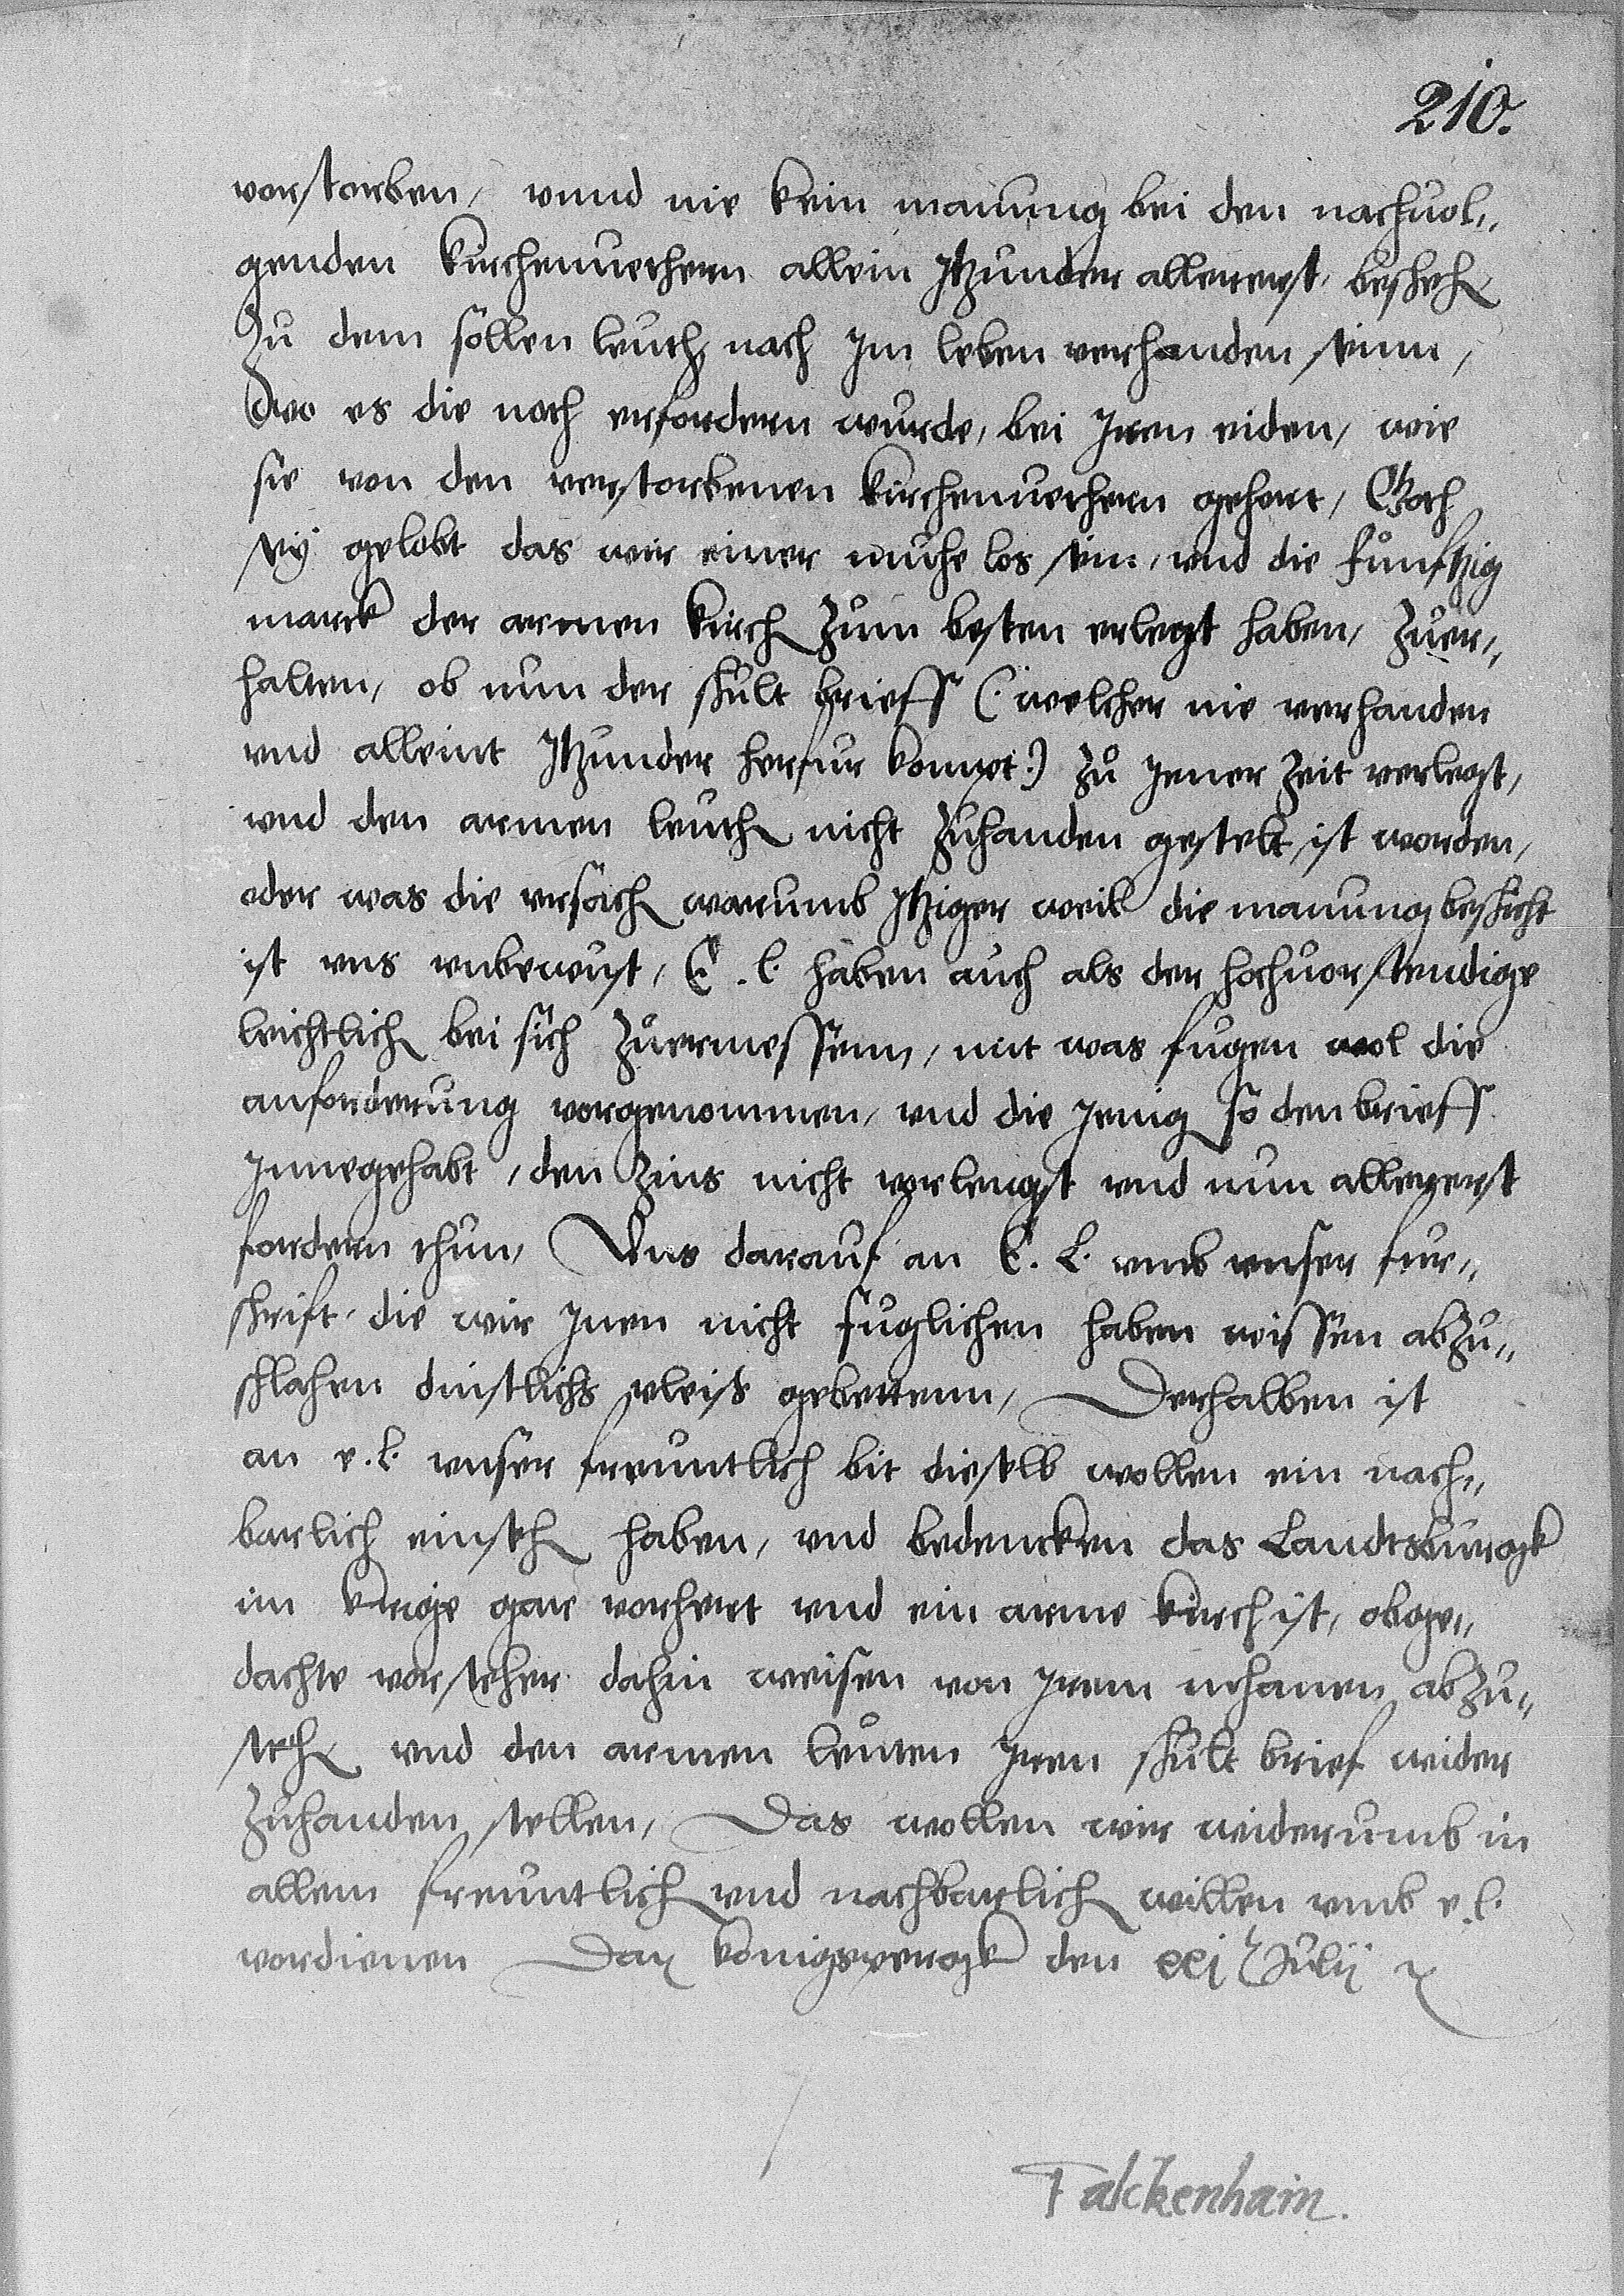 210.
vorstorben, vnnd nie kein manung bei den nachuol„
genden kirchenuethern allein Itzunder allererst, bescheh
Zu dem sollen leuth nach Im leben verhanden sein,
Wo es die noch erfordern wurde, bei Iren eiden, wie
sie von den verstorbenen kirchenuethern gehort, Goth
sey gelobt das wir einer muhe los sein, vnd die funftzig
marck der armen kirch zum besten erlegt haben, zuer„
halten, ob nun der schult brieff (: welcher nie verhanden
vnd alleint Itzunder herfur kompt :) zu Jener zeit verlegt,
vnd den armen leuth nicht zuhanden gestelt ist worden,
oder was die vrsach warumb Itziger weil die manung beschicht
ist vns vnbewust, E. l. haben auch als der hochuorstendige
leichtlich bei sich zuermessenn, mit was fugen wol die
anforderung vorgenommen, vnd die Jenig so den brieff
Innegehabt, den Zins nicht vorlengst vnd nun allererst
fordern thun, Vns darauf an E. L. vmb vnser fur„
schrift, die wir Inen nicht fuglichen haben wissen abzu„
schlahen dinstlichs vleiss gebettenn, Derhalben ist
an e. l. vnser freuntlich bit dieselb wollen ein nach„
barlich einseh haben, vnd bedencken das Landtsburgk
im krige gar vorhert vnd ein arme kirch ist, obge„
dachte vorsteher dahin weisen von Irem mhanen abzu„
steh vnd den armen leuten Iren schult brief wider
zuhanden stellen, Das wollen wir widerumb in
allem freuntlich vnd nachbarlich willen vmb e. l.
vordienen Dat konigspergk den xxj Julij
Falckenhain.